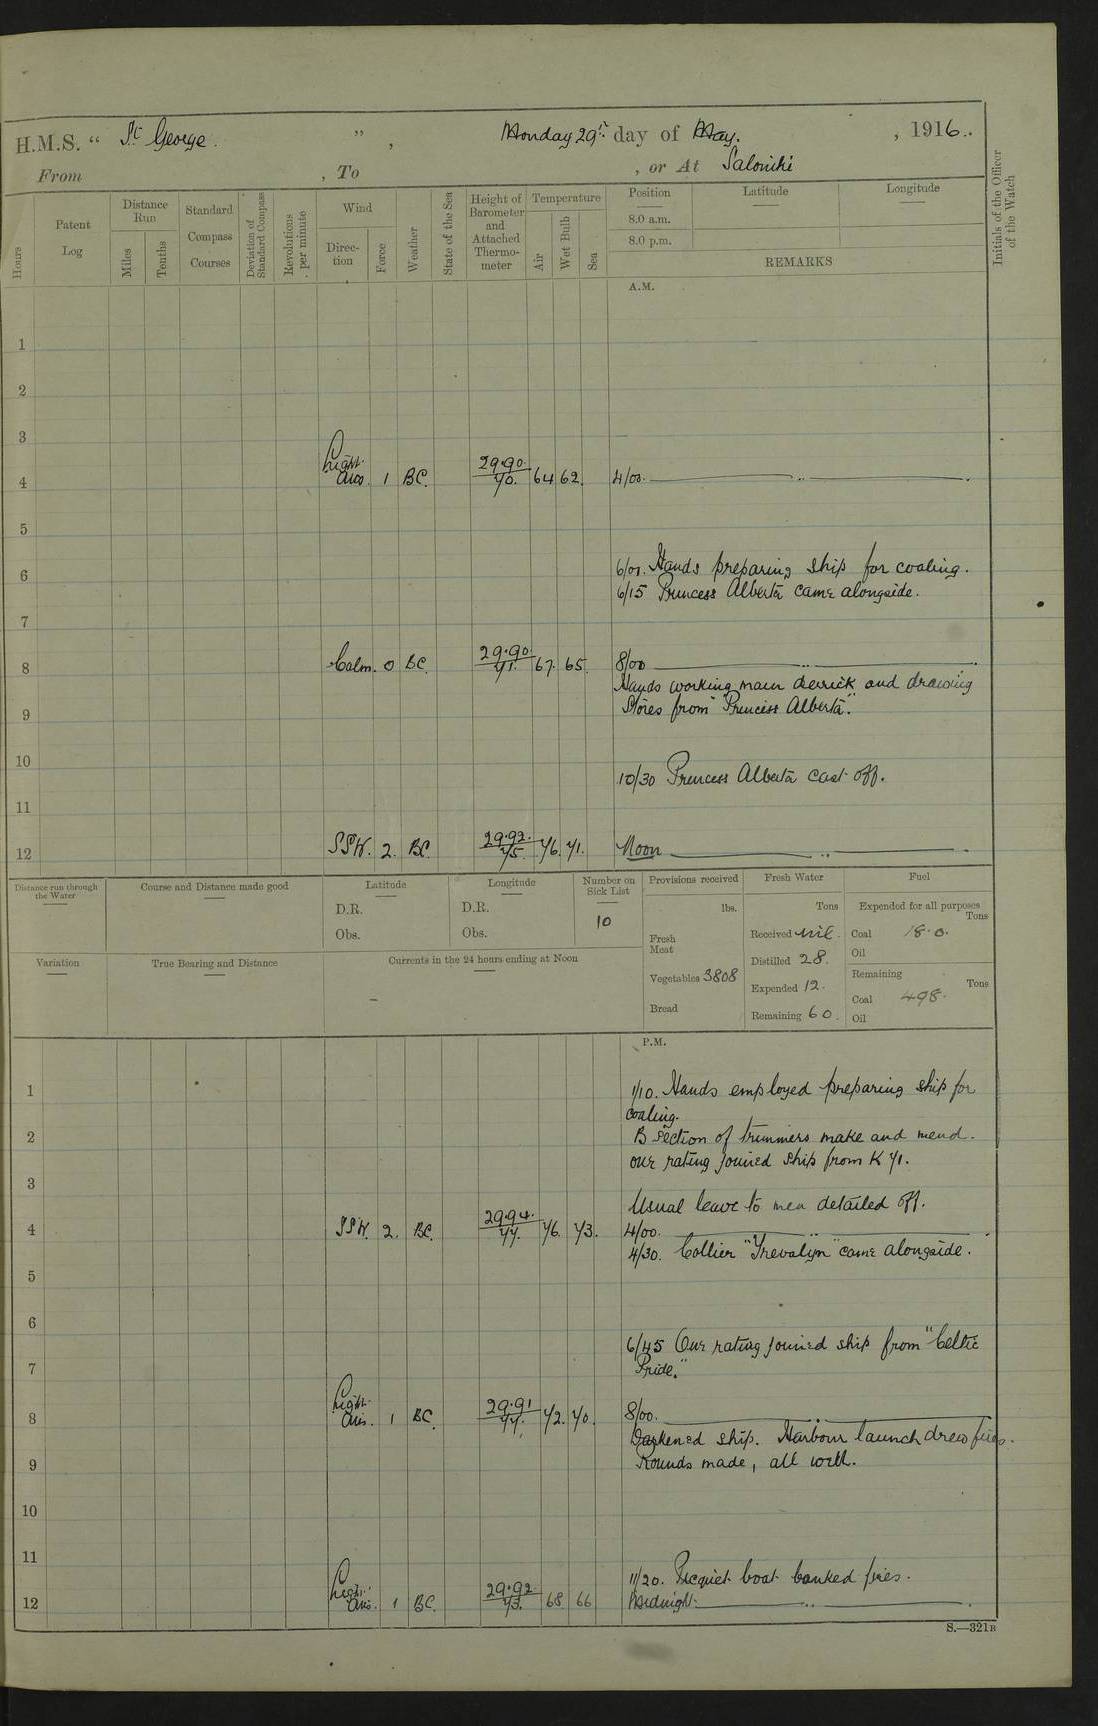 H.M.S. “ St George. ” , Monday 29th day of May. , 1916.
From , To , or At Saloniki
Hours
Patent Log
Distance Run
Miles
Tenths
Standard Compass Courses
Deviation of Standard Compass
Revolutions per minute
Wind
Direction
Force
Weather
State of the Sea
Height of Barometer and Attached Thermometer
Temperature
Air
Wet Bulb
Sea
Position
8.0 a.m.
8.0 p.m.
Latitude
Longitude
REMARKS
Initials of the Officer of the Watch
A.M.
1
2
3
4 Light airs. 1 BC. 29.90. 70. 64 62. 4/00.
5
6/00. Hands preparing ship for coaling.
6
6/15 Princess Alberta came alongside.
7
8 Calm. 0 BC 29.90 71. 67. 65. 8/00
Hands working main derrick and drawing
9
Stores from "Princess Alberta".
10
10/30 Princess Alberta cast off.
11
12 SSW. 2. BC. 29.92. 75. 76. 71. Noon
Distance run through the Water
Course and Distance made good
Latitude
D.R.
Obs.
Longitude
D.R.
Obs.
Number on Sick List
10
Provisions received
lbs.
Fresh Meat
Vegetables 3808
Bread
Fresh Water
Tons
Received nil.
Distilled 28.
Expended 12.
Remaining 60.
Fuel
Expended for all purposes
Tons
Coal 18.0.
Oil
Remaining
Tons
Coal 498.
Oil
Variation
True Bearing and Distance
Currents in the 24 hours ending at Noon
P.M.
1 1/10. Hands employed preparing ship for
coaling.
2 B section of trimmers make and mend.
one rating joined ship from K 71.
3
Usual leave to men detailed off.
4 SSW. 2. BC. 29.94. 77. 76. 73. 4/00.
4/30. Collier "Trevalyn" came alongside.
5
6
6/45 One rating joined ship from "Celtic
7
Pride."
8 Light airs. 1 BC. 29.91 77. 72. 70. 8/00.
Darkened ship. Harbour launch drew fires.
9 Rounds made, all well.
10
11
11/20. Picquet boat banked fires.
12 Light airs. 1 BC. 29.92. 73. 68 66 Midnight.
S.—321B